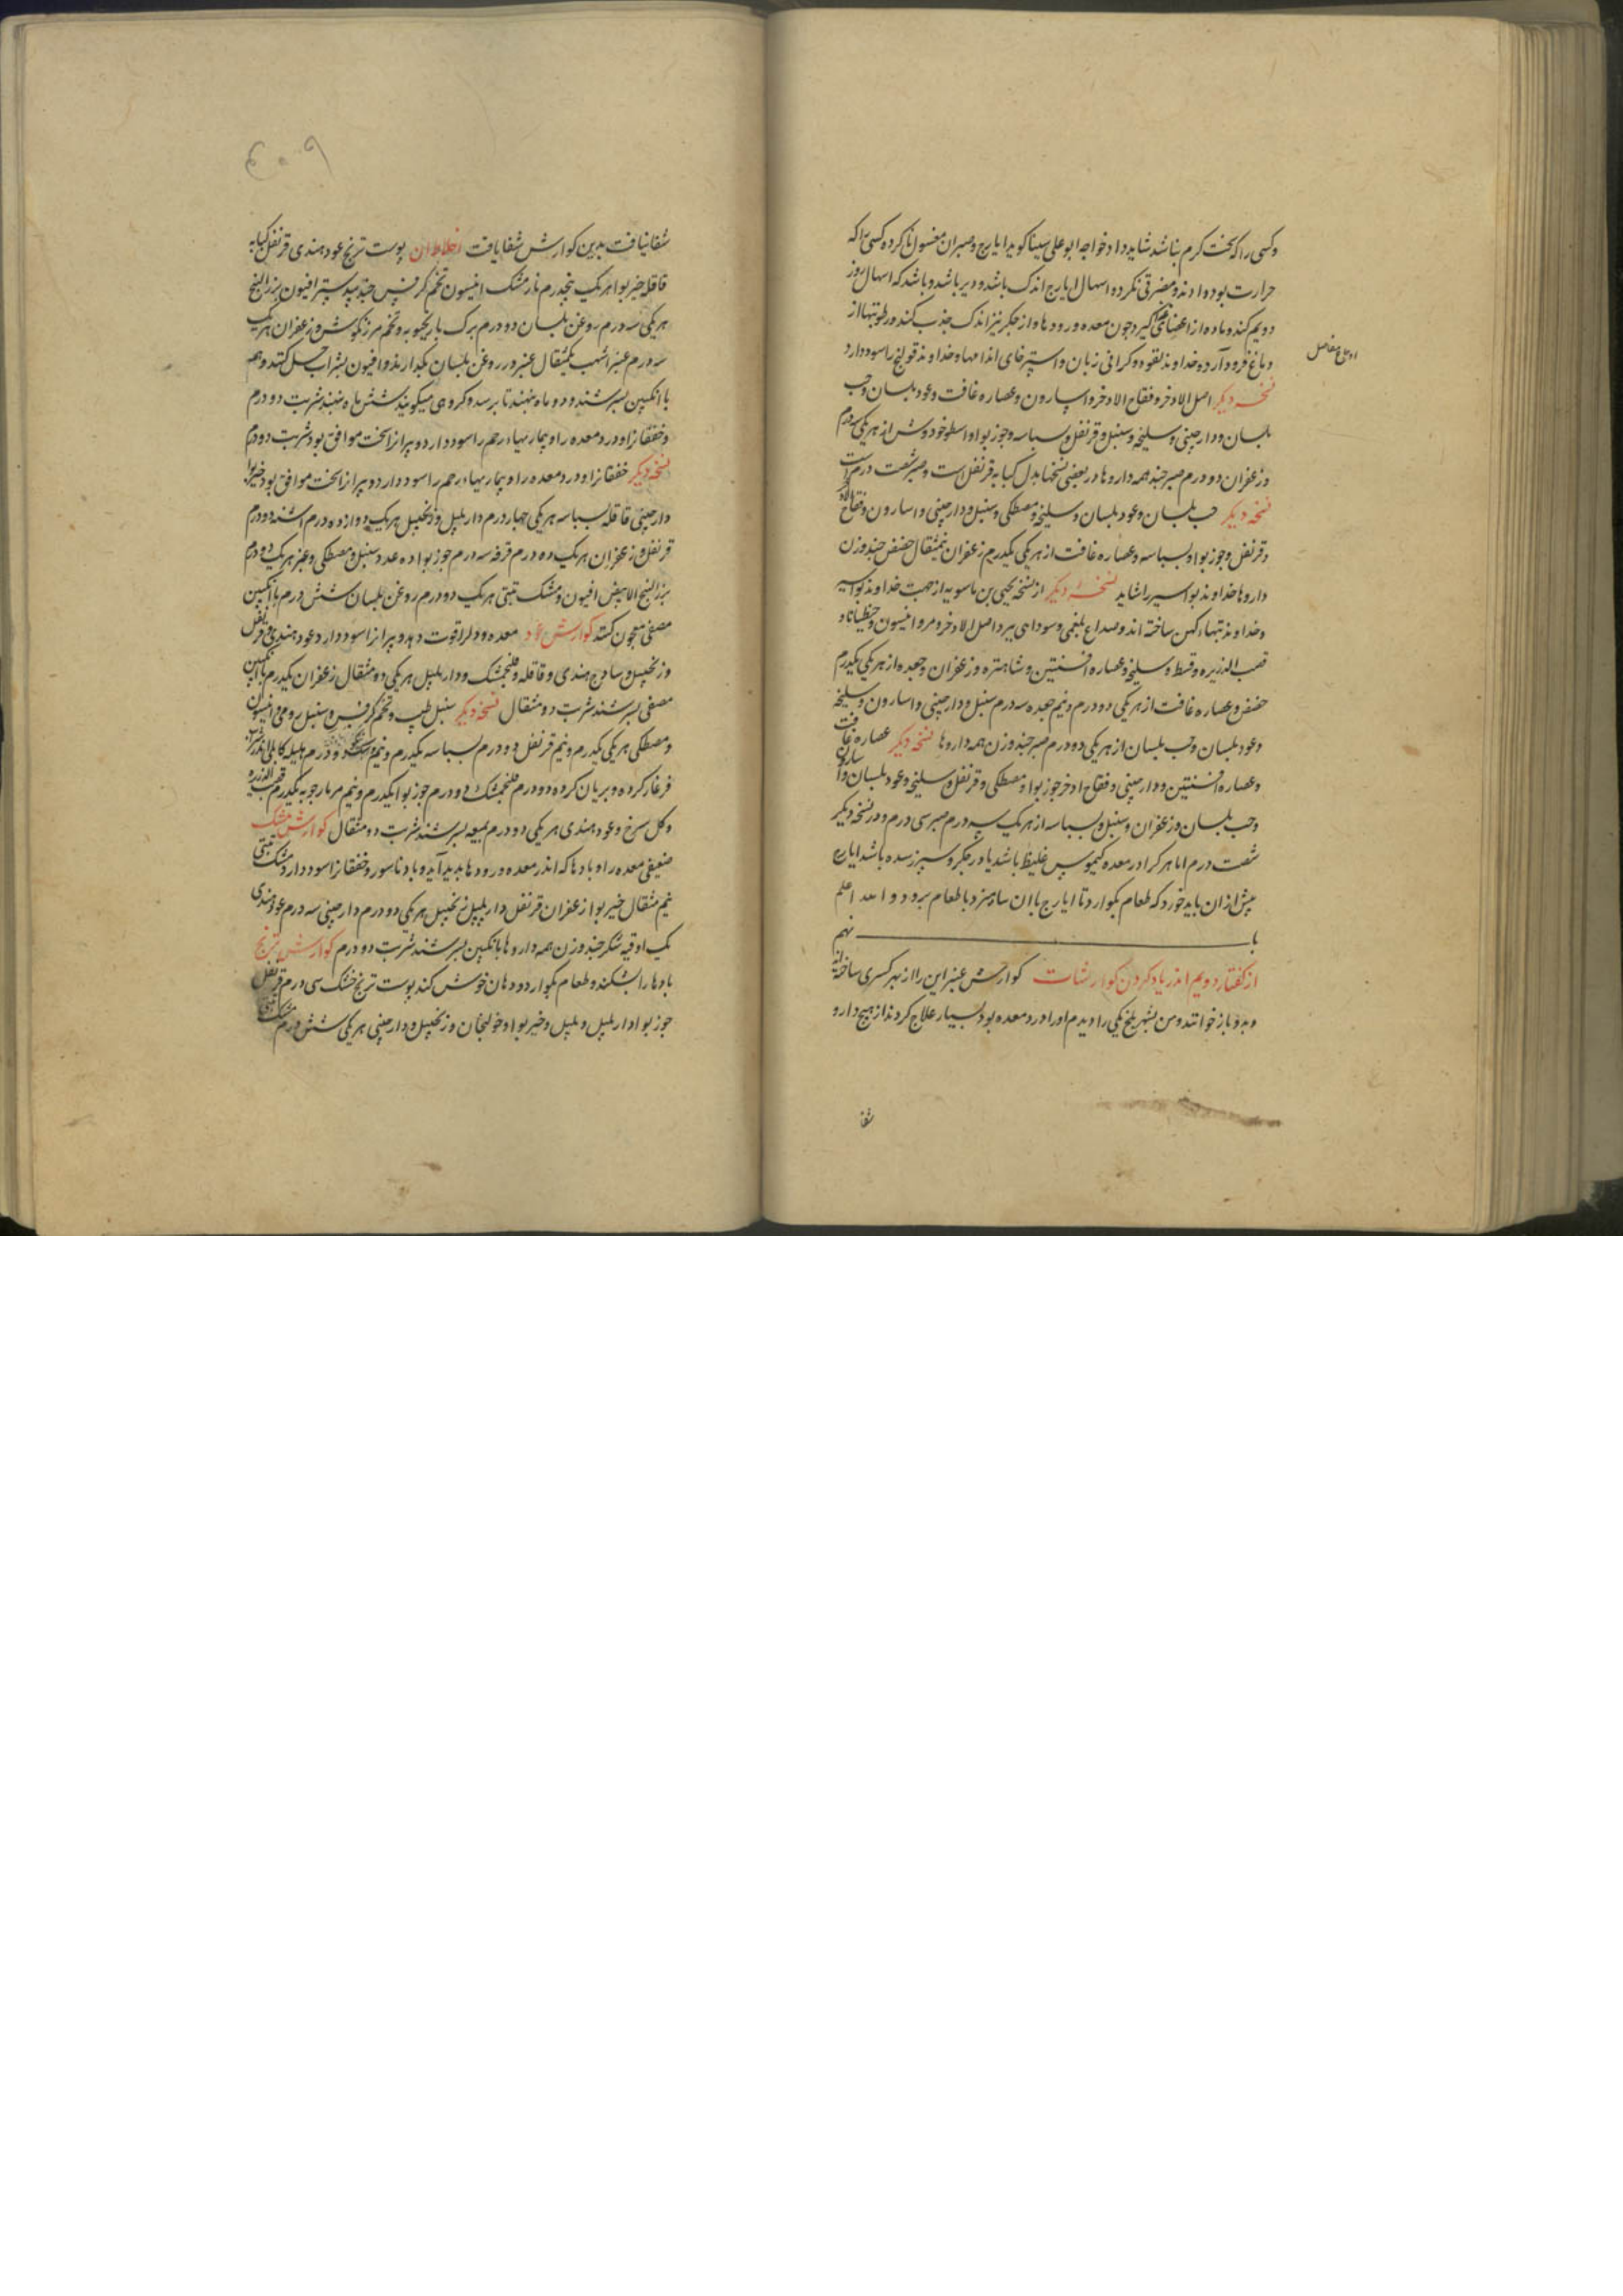 وکسی را که سخت گرم نباشد شاید داد خواجه ابوعلی سینا کوید ایارج وصبران مغسول ناکرده کسی را که
حرارت بود داوند ومضرتی نکرد و اسهال ایارج اندک باشد ودیر باشد وباشد که اسهال روز
دویم کند وماده از اعضاهایی کیرد چون معده ورودها واز جکر نیز اندک جذب کند ورطوبتها از
دماغ فرود آرد وخداوند لقوه وکرانی زبان واسترخای اندامها وخداوند قولنج را سود دارد
اوجاع مفاصل
نسخه دیکر اصل الاذخر وفقاح الاذخر واسارون وعصاره غافت وعود بلسان وحب
بلسان ودارچینی وسلیخه وسنبل وقرنفل وبسباسه وجوز بوا واسطوخودوش از هریکی سه درم
وزعفران دو درم صبر چند همه داروها ودر بعضی نسخها بدل کبابه قرنفل است وصبر شصت درم است
نسخه دیکر حب بلسان وعود بلسان وسلیخه ومصطکی وسنبل ودارچینی واسارون وفقاح الاذخر
وقرنفل وجوز بوا وبسباسه وعصاره غافت از هریکی یکدرم زعفران نیم مثقال حضض چند وزن
داروها خداوند بواسیر را شاید نسخه دیکر از نسخه یحیی بن ماسویه از جهت خداوند بواسیر
وخداوند تبهاء کهن ساخته اند وصداع بلغمی وسودای ببرد اصل الاذخر ومر وانیسون وجنطیانا و
قصب الذریره وقسط وسلیخه وعصاره افسنتین وشاهتره وزعفران وجعده از هریکی یکدرم
حضض وعصاره غافت از هریکی دو درم ونیم جعده سه درم سنبل ودارچینی واسارون وسلیخه
وعود بلسان وحب بلسان از هریکی ده درم صبر چند وزن همه داروها نسخه دیکر عصاره غافت
وعصاره افسنتین ودارچینی وفقاح اذخر جوز بوا ومصطکی وقرنفل وسلیخه وعود بلسان واسارون
وحب بلسان وزعفران وسنبل وبسباسه از هریک سه درم صبر سی درم ودر نسخه دیکر
شصت درم اما هر کرا در معده کیموس غلیظ باشد یا در جکر وسپرز سده باشد ایارج
پیش از ان باید خورد که طعام بکوارد تا ایارج با ان سامیزد با طعام برود والله اعلم
با نهم
از کفتار دویم اندر یاد کردن کوارشات کوارش عنبر این را از بهر کسری ساخته اند
وبدو باز خوانند ومن بشهر بلخ یکی را دیدم او را درد معده بود بسیار علاج کردند از هیچ دارو
شفا
۴۰۹
شفا نیافت بدین کوارش شفا یافت اخلاط ان پوست ترنج عود هندی قرنفل کبابه
قاقله خیر بوا هریک پنجدرم نارمشک انیسون تخم کرفس جندبیدستر افیون بزرالبنج
هریکی سه درم روغن بلسان دو درم برک بادرنجبویه وتخم مرزنکوش وزعفران هریک
سه درم عنبر اشهب یکمثقال عنبر در روغن بلسان بکدازند وافیون بشراب حل کنند وهمه
با انکبین بسرشند ودو ماه بنهند تا برسد وکروهی میکویند شش ماه بنهند شربت دو درم
وخفقان را ودرد معده را وبیماریهاء رحم را سود دارد وپیران را سخت موافق بود شربت دو درم
نسخه دیکر خفقان را ودرد معده را وبیماریهاء رحم را سود دارد وپیران را سخت موافق بود خیربوا
دارچینی قاقله بسباسه هریکی چهار درم دارپلپل وزنجبیل هریک دوازده درم اشنه دو درم
قرنفل وزعفران هریک ده درم قرفه سه درم جوز بوا ده عدد سنبل ومصطکی وعنبر هریک دو درم
بزرالبنج الابیض افیون ومشک تبتی هریک دو درم روغن بلسان شش درم با انکبین
مصفی معجون کنند کوارش عود معده ودل را قوت دهد وپیران را سود دارد عود هندی وقرنفل
وزنجبیل وساذج هندی وقاقله وفلنجمشک ودارپلپل هریکی دو مثقال زعفران یکدرم با انکبین
مصفی بسرشند شربت دو مثقال نسخه دیکر سنبل طیب وتخم کرفس وسنبل رومی وانیسون
ومصطکی هریکی یکدرم ونیم قرنفل دو درم بسباسه یکدرم ونیم دو درم هلیله کابلی اندر شراب
فرغار کرده وبریان کرده دو درم فلنجمشک دو درم جوز بوا یکدرم ونیم مر مارجوبه یکدرم قصب الذریره
وکل سرخ وعود هندی هریکی دو درم بمیعه بسرشند شربت دو مثقال کوارش مشک
ضعیفی معده را وبادها که اندر معده ورودها پدید آید وباد ناسور وخفقان را سود دارد مشک تبتی
نیم مثقال خیر بوا زعفران قرنفل دارپلپل زنجبیل هریکی دو درم دارچینی سه درم عود هندی
یک اوقیه شکر چند وزن همه داروها بانکبین بسرشند شربت دو درم کوارش ترنج
بادها را بشکند وطعام بکوارد ودهان خوش کند پوست ترنج خشک سی درم قرنفل
جوز بوا دارپلپل وپلپل وخیر بوا وخولنجان وزنجبیل ودارچینی هریکی شش درم مشک